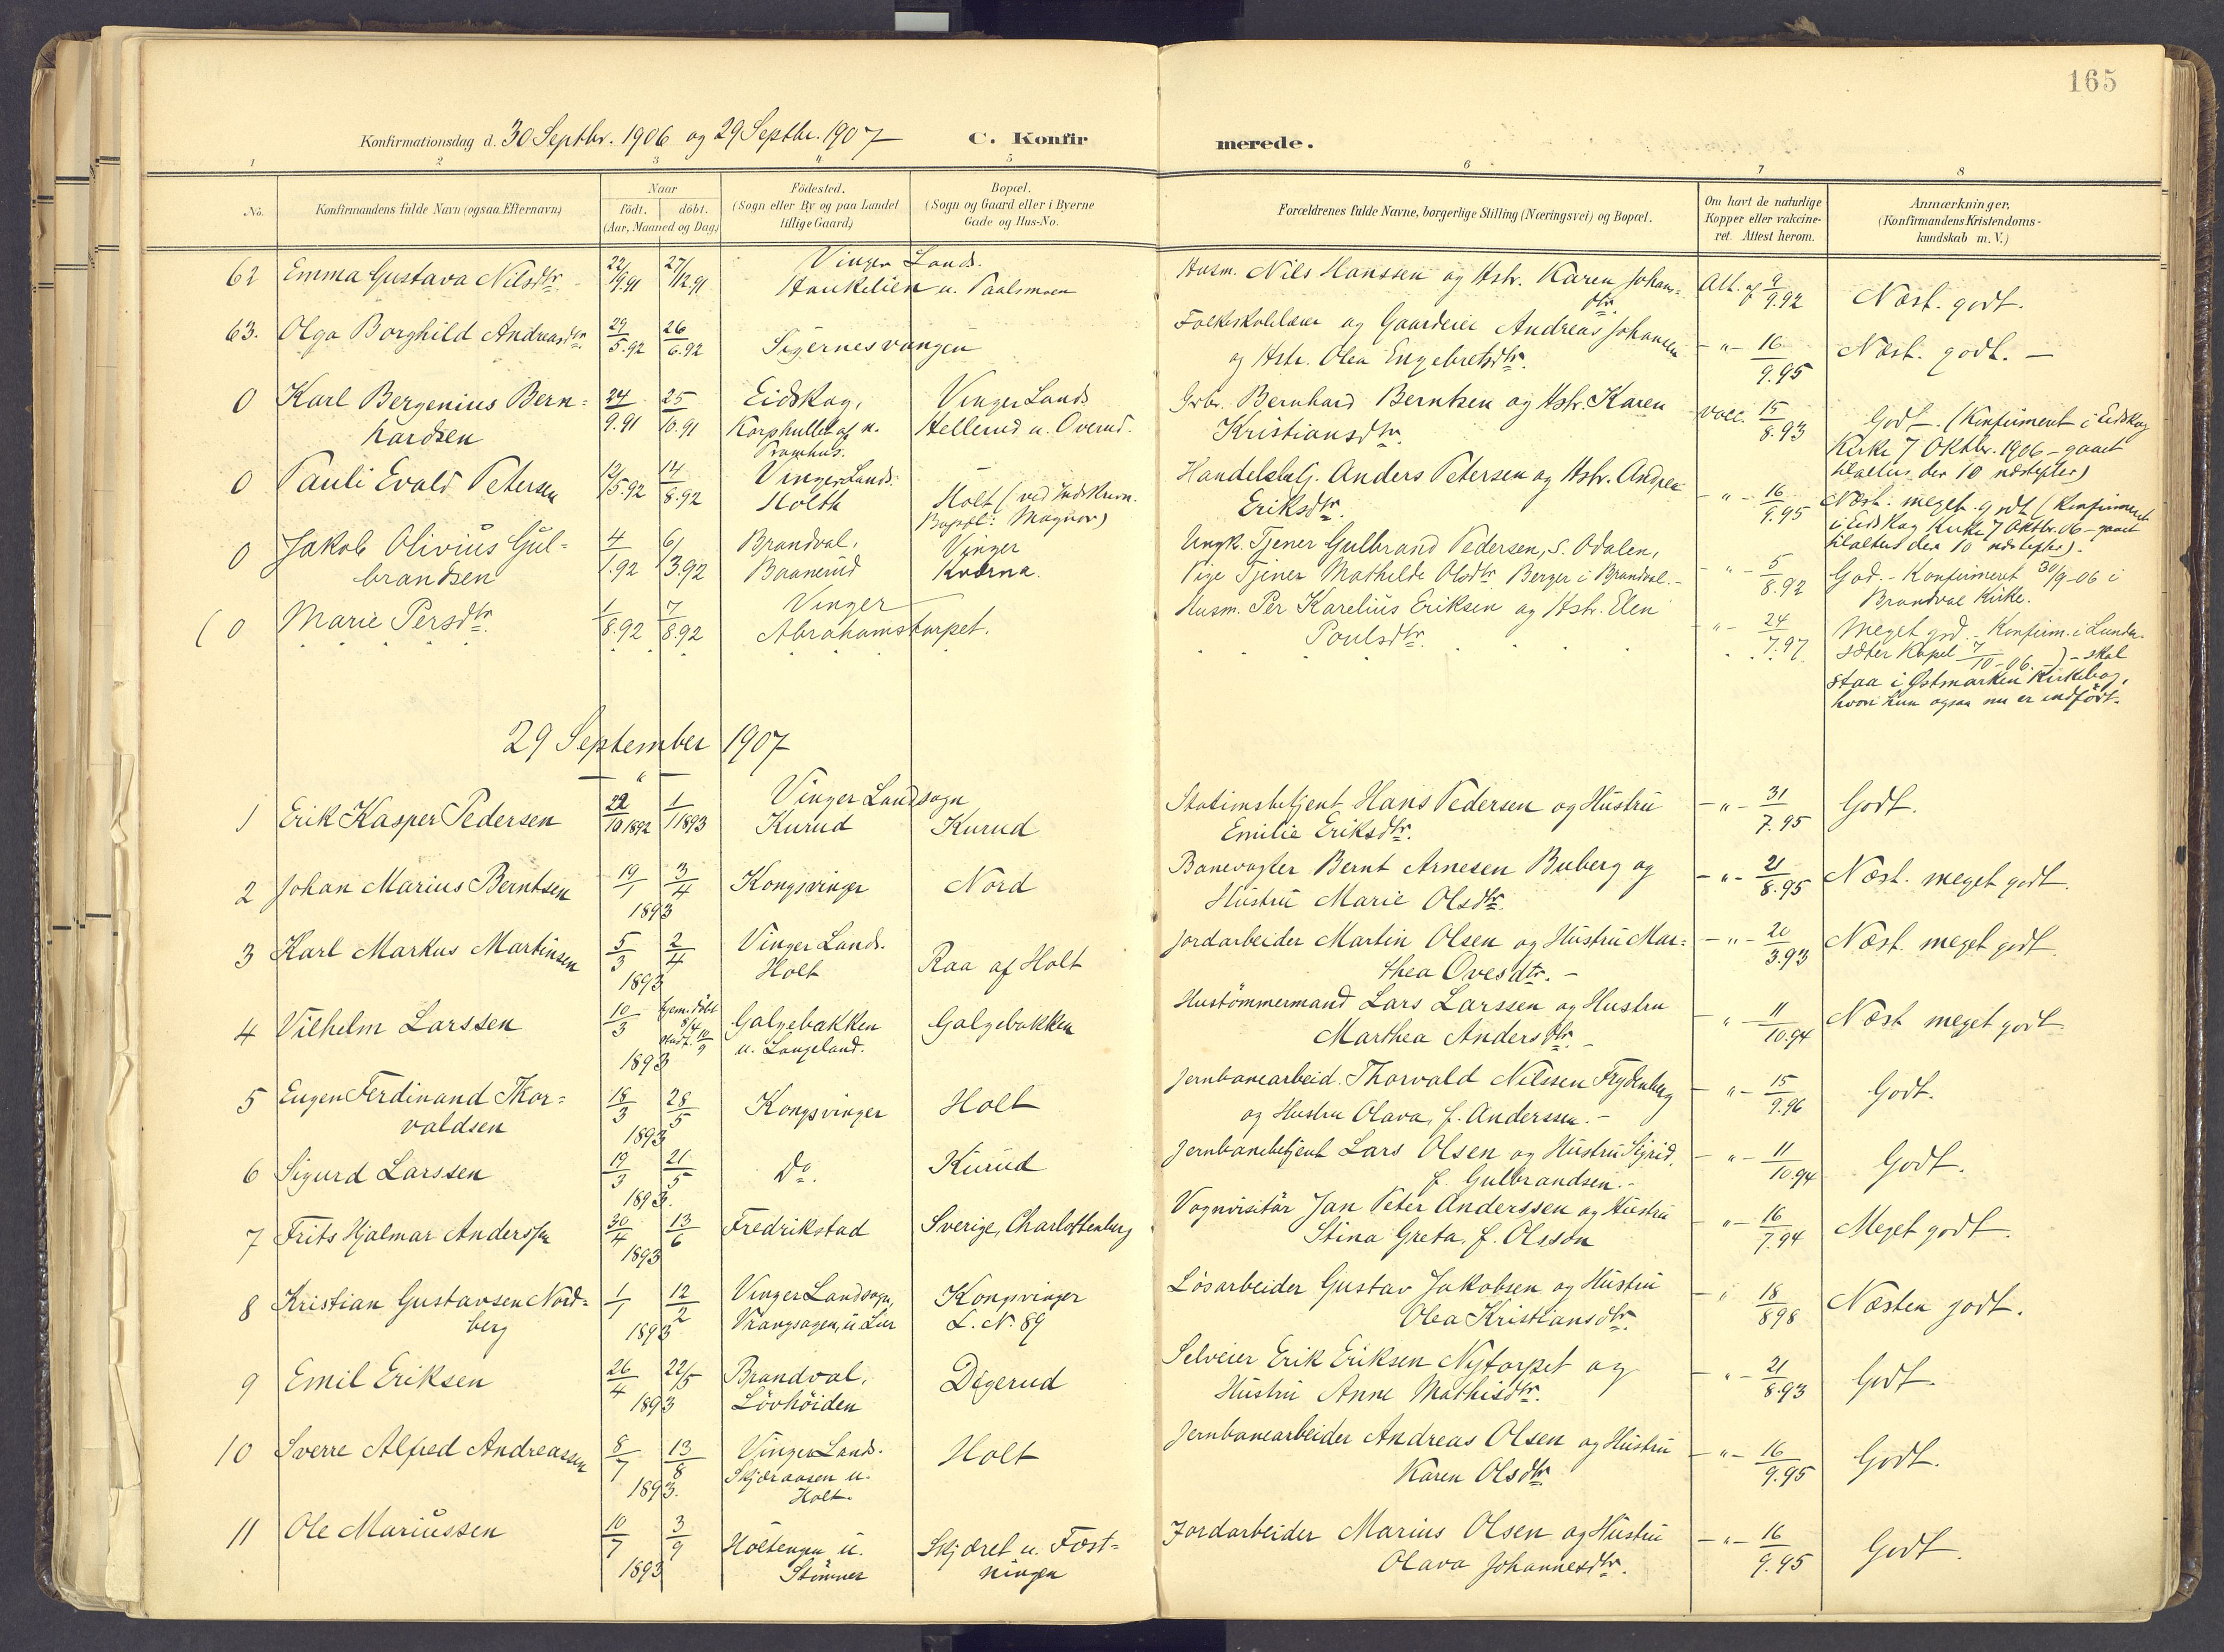 165
Konfirmationsdag d. 30 Septbr. 1906 og 29 Septbr. 1907 C. Konfir merede.
1 2 3 4 5 6 7 8
No. Konfirmandens fulde Navn (ogsaa Efternavn) Naar født. døbt. (Aar, Maaned og Dag) Födested. (Sogn eller By og paa Landet tillige Gaard) Bopæl. (Sogn og Gaard eller i Byerne Gade og Hus-No. Forældrenes fulde Navne, borgerlige Stilling (Næringsvei) og Bopæl. Om havt de naturlige Kopper eller vakcineret. Attest herom. Anmærkninger. (Konfirmandens Kristendomskundskab m. V.)
62 Emma Gustava Nilsdtr. 27/12.91 Vinger Lands. Husm. Nils Hanssen og Hstr. Karen Johans= Att. af 9/9.92 Næst. godt.
Haukelien u. Paalsmoen dtr.
63. Olga Borghild Andreasdtr. 29/5.92 26/6.92 Sigernesvangen Folkeskolelærer og Gaardeier Andreas Johansen -"- 16/9.95 Næst. godt. –
og Hstr. Olea Engebretsdtr.
0 Karl Bergenius Bern= 24/9.91 25/10.91 Eidskog, Vinger Lands Grbr. Bernhard Berntsen og Hstr. Karen vacc. 15/8.93 Godt. (Konfirmeret i Eidskog
hardsen Hellerud u. Overud. Kristiansdtr. Kirke 7 Oktbr. 1906 – gaaet
tilalters der 10 næstefter)
0 Pauli Evald Petersen 12/5.92 14/8.92 Vinger Lands. Holth Holt (ved Indskrivn. Handelsbetj. Anders Petersen og Hstr. Andrea -"- 16/9.95 Næst. meget godt (Konfirmeret
Bopæl: Magnor) Eriksdtr. i Eidskog Kirke 7 Oktbr. 06 – gaaet
tilalters der 10 næstefter).
0 Jakob Olivius Gul= 4/1.92 6/3.92 Brandval, Vinger Ungk. Tjener Gulbrand Pedersen, S. Odalen, -"- 5/8.92 God. – Konfirmeret 30/9-06 i
brandsen Baanerud Kværna. Pige Tjener Mathilde Olsdtr. Berger i Brandval. – Brandval Kirke.
(0 Marie Persdtr. 1/8.92 7/8.92 Vinger Husm. Per Karelius Eriksen og Hstr. Elen -"- 24/7.97 Meget god. – Konfirm. i Lunder-
Abrahamstorpet. Poulsdtr. sæter Kapel 7/10-06. –) – skal
staa i Østmarken Kirkebog,
hvori hun ogsaa nu er indført.
29 September 1907
1 Erik Kasper Pedersen 22/10 1892 1/1 1893 Vinger Landsogn Kurud Kurud Stationsbetjent Hans Pedersen og Hustru -"- 31/7.95 Godt.
Emilie Eriksdtr.
2 Johan Marius Berntsen 19/1 3/4 1893 Kongsvinger Nord Banevogter Bernt Arnesen Buberg og -"- 21/8.95 Næst. meget godt.
Hustru Marie Olsdtr.
3 Karl Markus Martinsen 5/3 2/4 1893 Vinger Lands. Holt Raa af Holt Jordarbeider Martin Olsen og Hustru Mar= -"- 20/3.93 Næst. meget godt.
thea Ovesdtr. –
4 Vilhelm Larssen 10/3 1893 Hjem.døbt 8/4 Galgebakken Galgebakken Hustömmermand Lars Larssen og Hustru -"- 11/10.94 Næst meget godt.
u. Langeland. Marthea Andersdtr. –
5 Eugen Ferdinand Thor= 18/3 28/5 1893 Kongsvinger Holt Jernbanearbeid. Thorvald Nilssen Frydenberg -"- 15/9.96 Godt.
valdsen og Hustru Olava, f. Anderssen. –
6 Sigurd Larssen 19/3 21/5 1893. Do. Kurud Jernbanebetjent Lars Olsen og Hustru Sigrid, -"- 11/10.94 Godt.
f. Gulbrandsen. –
7 Frits Hjalmar Anderssen 30/4 13/6 1893 Fredrikstad Sverige, Charlottenberg Vognvisitör Jan Peter Anderssen og Hustru -"- 16/7.94 Meget godt.
Stina Greta, f. Olsson
8 Kristian Gustavsen Nord= 1/1 12/2 1893 Vinger Landsogn, Kongsvinger Lösarbeider Gustav Jakobsen og Hustru -"- 18/8 98 Næsten godt.
berg Vrangsagen, u Lier L. N. 89 Olea Kristiansdtr.
9 Emil Eriksen 26/4 22/5 1893 Brandval, Lövhöiden Digerud Selveier Erik Eriksen Nytorpet og -"- 21/8.93 Godt.
Hustru Anne Mathisdtr.
10 Sverre Alfred Andreassen 8/7 13/8 1893. Vinger Lands. Holt Jernbanearbeider Andreas Olsen og Hustru -"- 16/9.95 Godt.
Skjæraasen u. Holt. Karen Olsdtr.
11 Ole Mariussen 10/7 3/9 1893 Holtengen u. Skjæret u. Fæst= Jordarbeider Marius Olsen og Hustru -"- 16/9.95 Godt.
Stömner ningen Olava Johannesdtr.